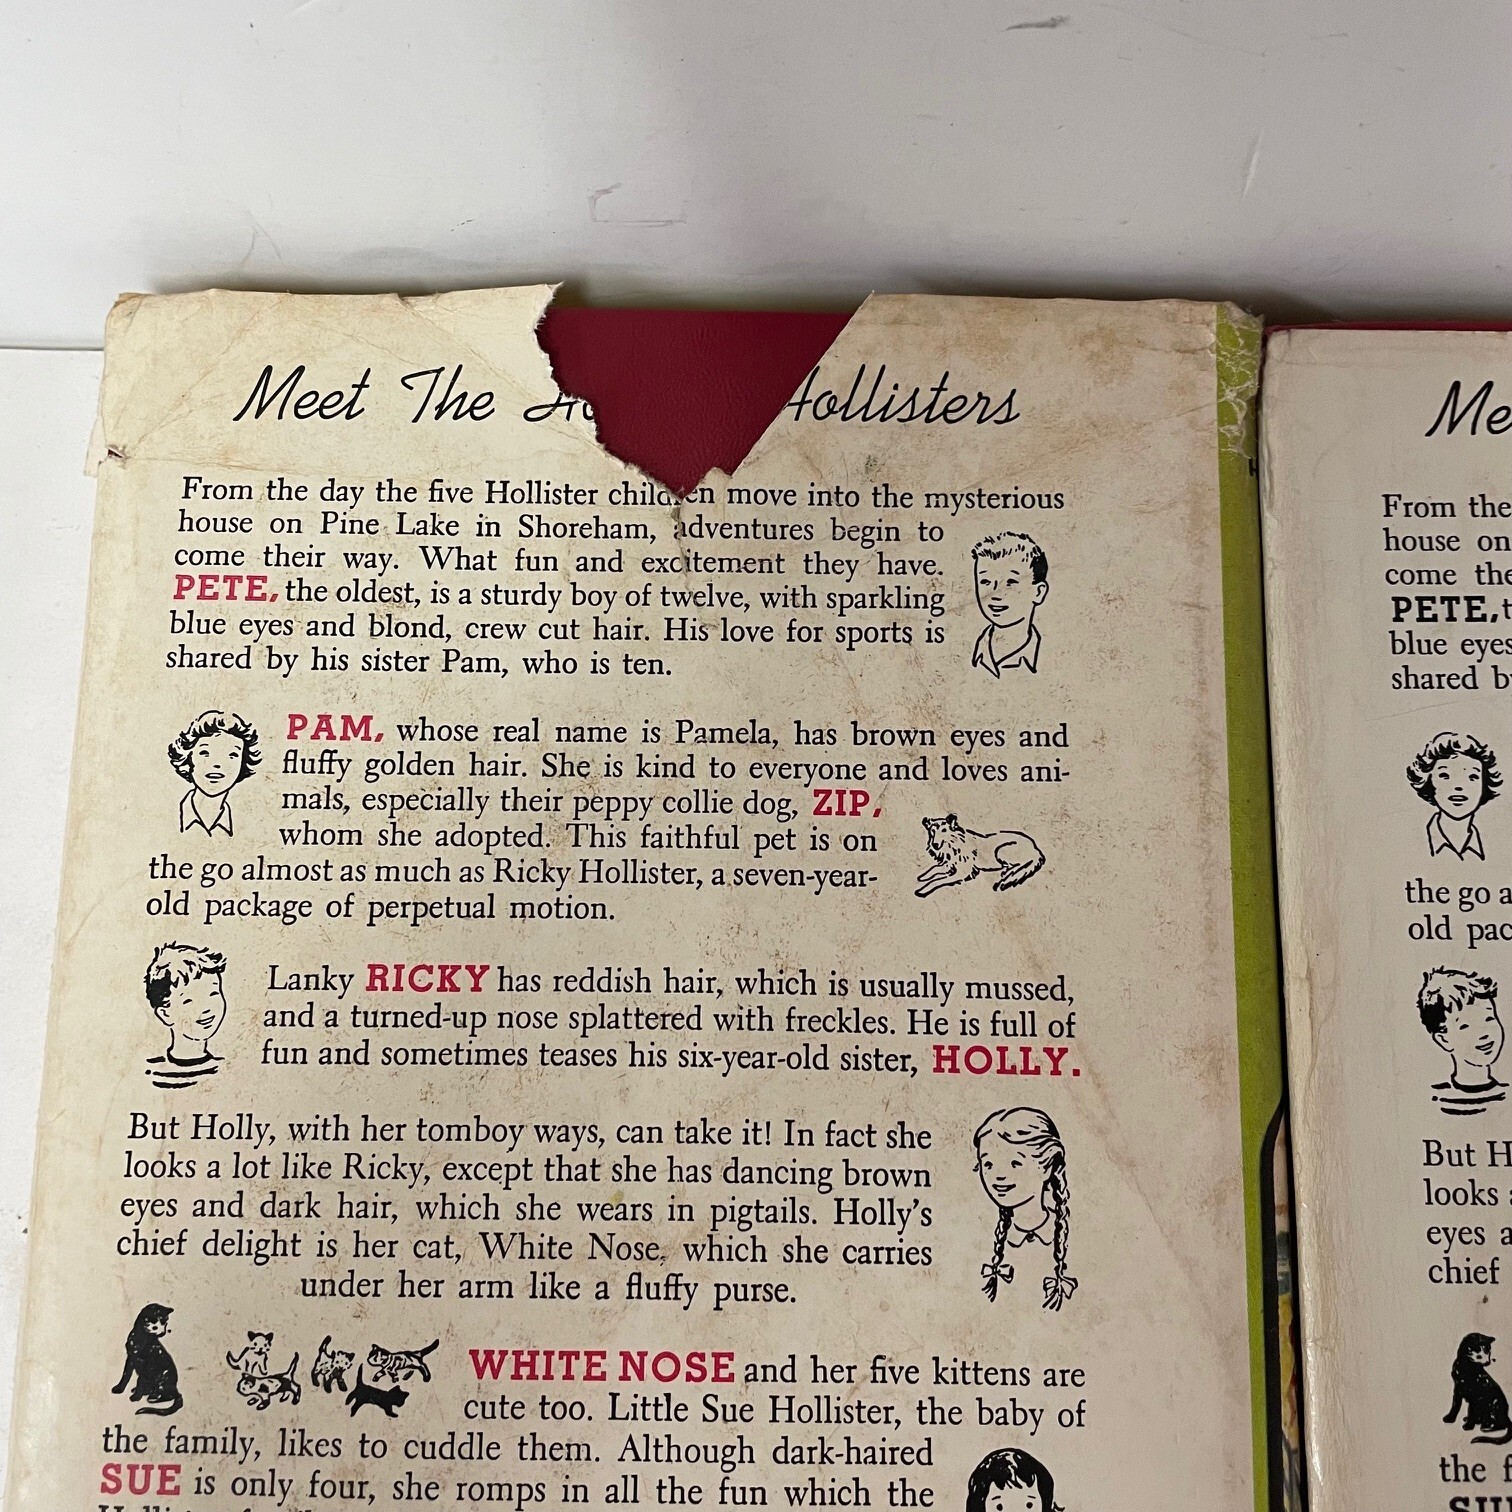 Meet The Hollisters
From the day the five Hollister children move into the mysterious
house on Pine Lake in Shoreham, adventures begin to
come their way. What fun and excitement they have.
PETE, the oldest, is a sturdy boy of twelve, with sparkling
blue eyes and blond, crew cut hair. His love for sports is
shared by his sister Pam, who is ten.
PAM, whose real name is Pamela, has brown eyes and
fluffy golden hair. She is kind to everyone and loves ani-
mals, especially their peppy collie dog, ZIP,
whom she adopted. This faithful pet is on
the go almost as much as Ricky Hollister, a seven-year-
old package of perpetual motion.
Lanky RICKY has reddish hair, which is usually mussed,
and a turned-up nose splattered with freckles. He is full of
fun and sometimes teases his six-year-old sister, HOLLY.
But Holly, with her tomboy ways, can take it! In fact she
looks a lot like Ricky, except that she has dancing brown
eyes and dark hair, which she wears in pigtails. Holly's
chief delight is her cat, White Nose, which she carries
under her arm like a fluffy purse.
WHITE NOSE and her five kittens are
cute too. Little Sue Hollister, the baby of
the family, likes to cuddle them. Although dark-haired
SUE is only four, she romps in all the fun which the
Me
From the
house on
come the
PETE, t
blue eyes
shared b
the go a
old pac
But H
looks
eyes a
chief
the f
SU